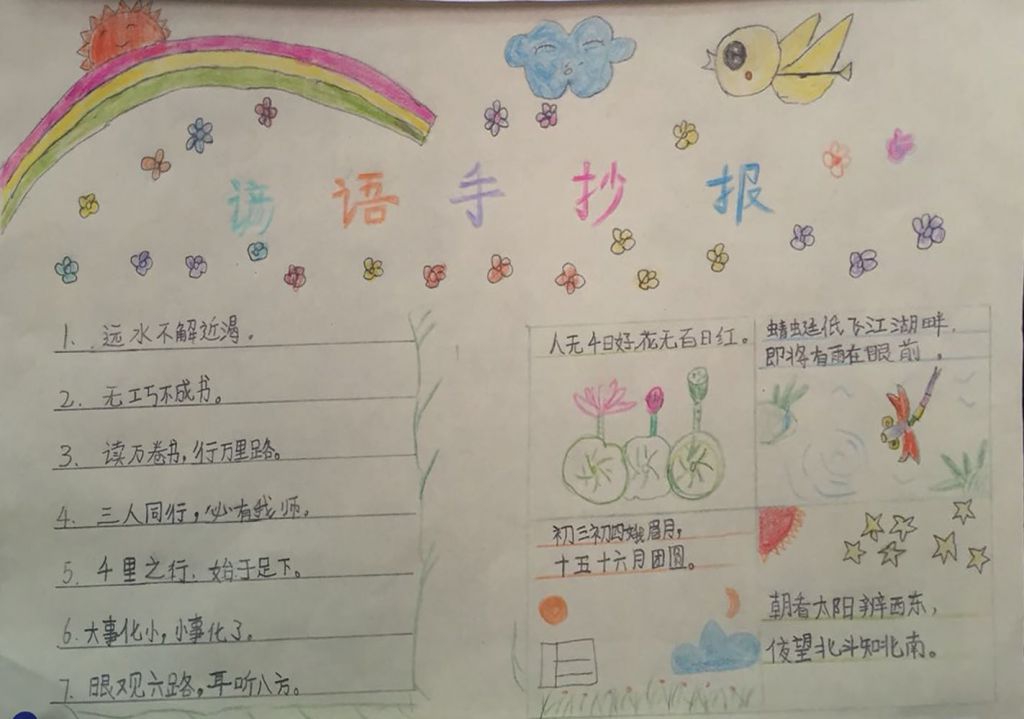 谚语手抄报
1. 远水不解近渴。
2. 无工巧不成书。
3. 读万卷书,行万里路。
4. 三人同行,必有我师。
5. 千里之行,始于足下。
6. 大事化小,小事化了。
7. 眼观六路,耳听八方。
人无千日好,花无百日红。
蜻蜓低飞江湖畔,
即将有雨在眼前。
初三初四娥眉月,
十五十六月团圆。
朝看太阳辨西东,
夜望北斗知北南。